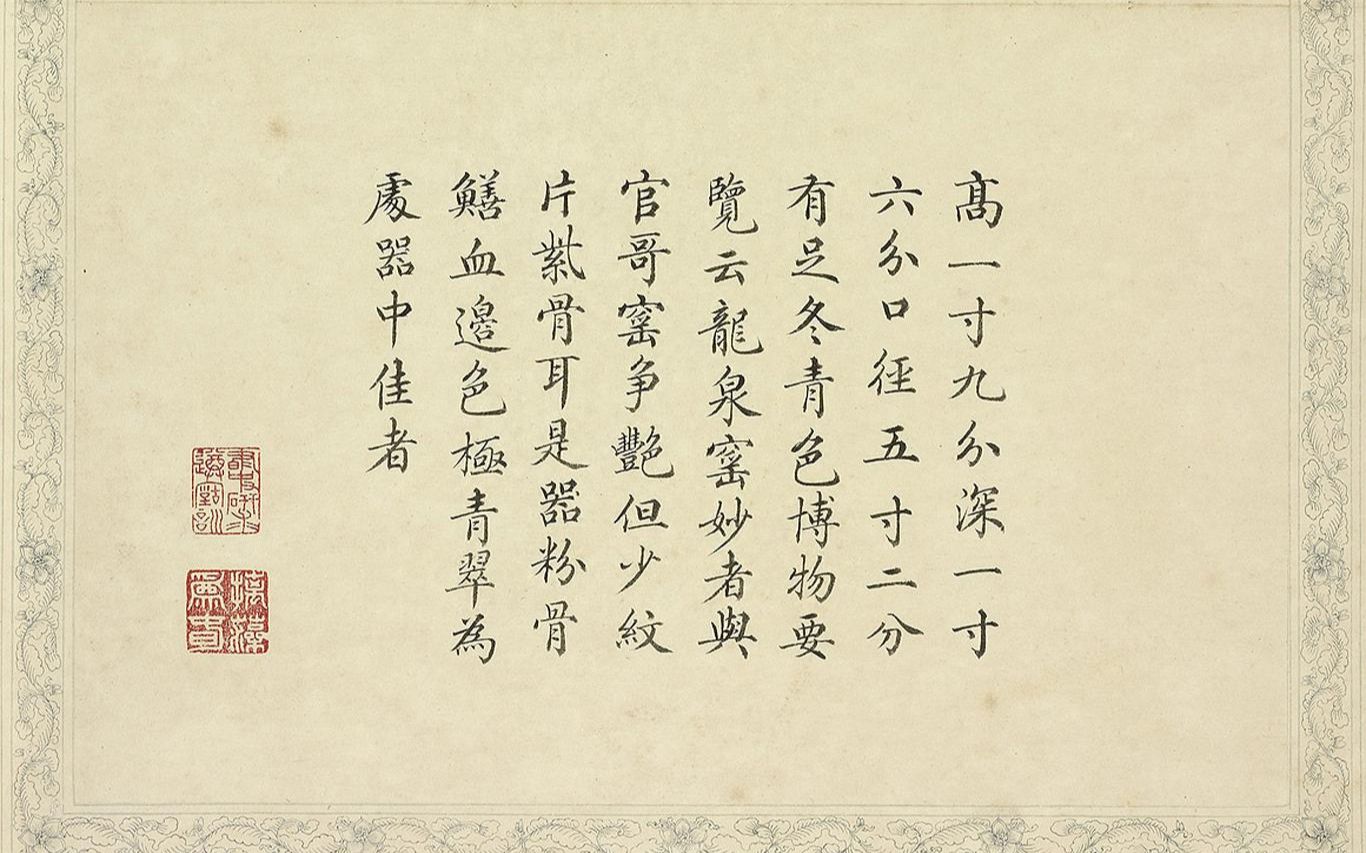 高一寸九分深一寸
六分口徑五寸二分
有足冬青色博物要
覽云龍泉窰妙者與
官哥窰争艷但少紋
片紫骨耳是器粉骨
鱔血邉色極青翠為
處器中佳者